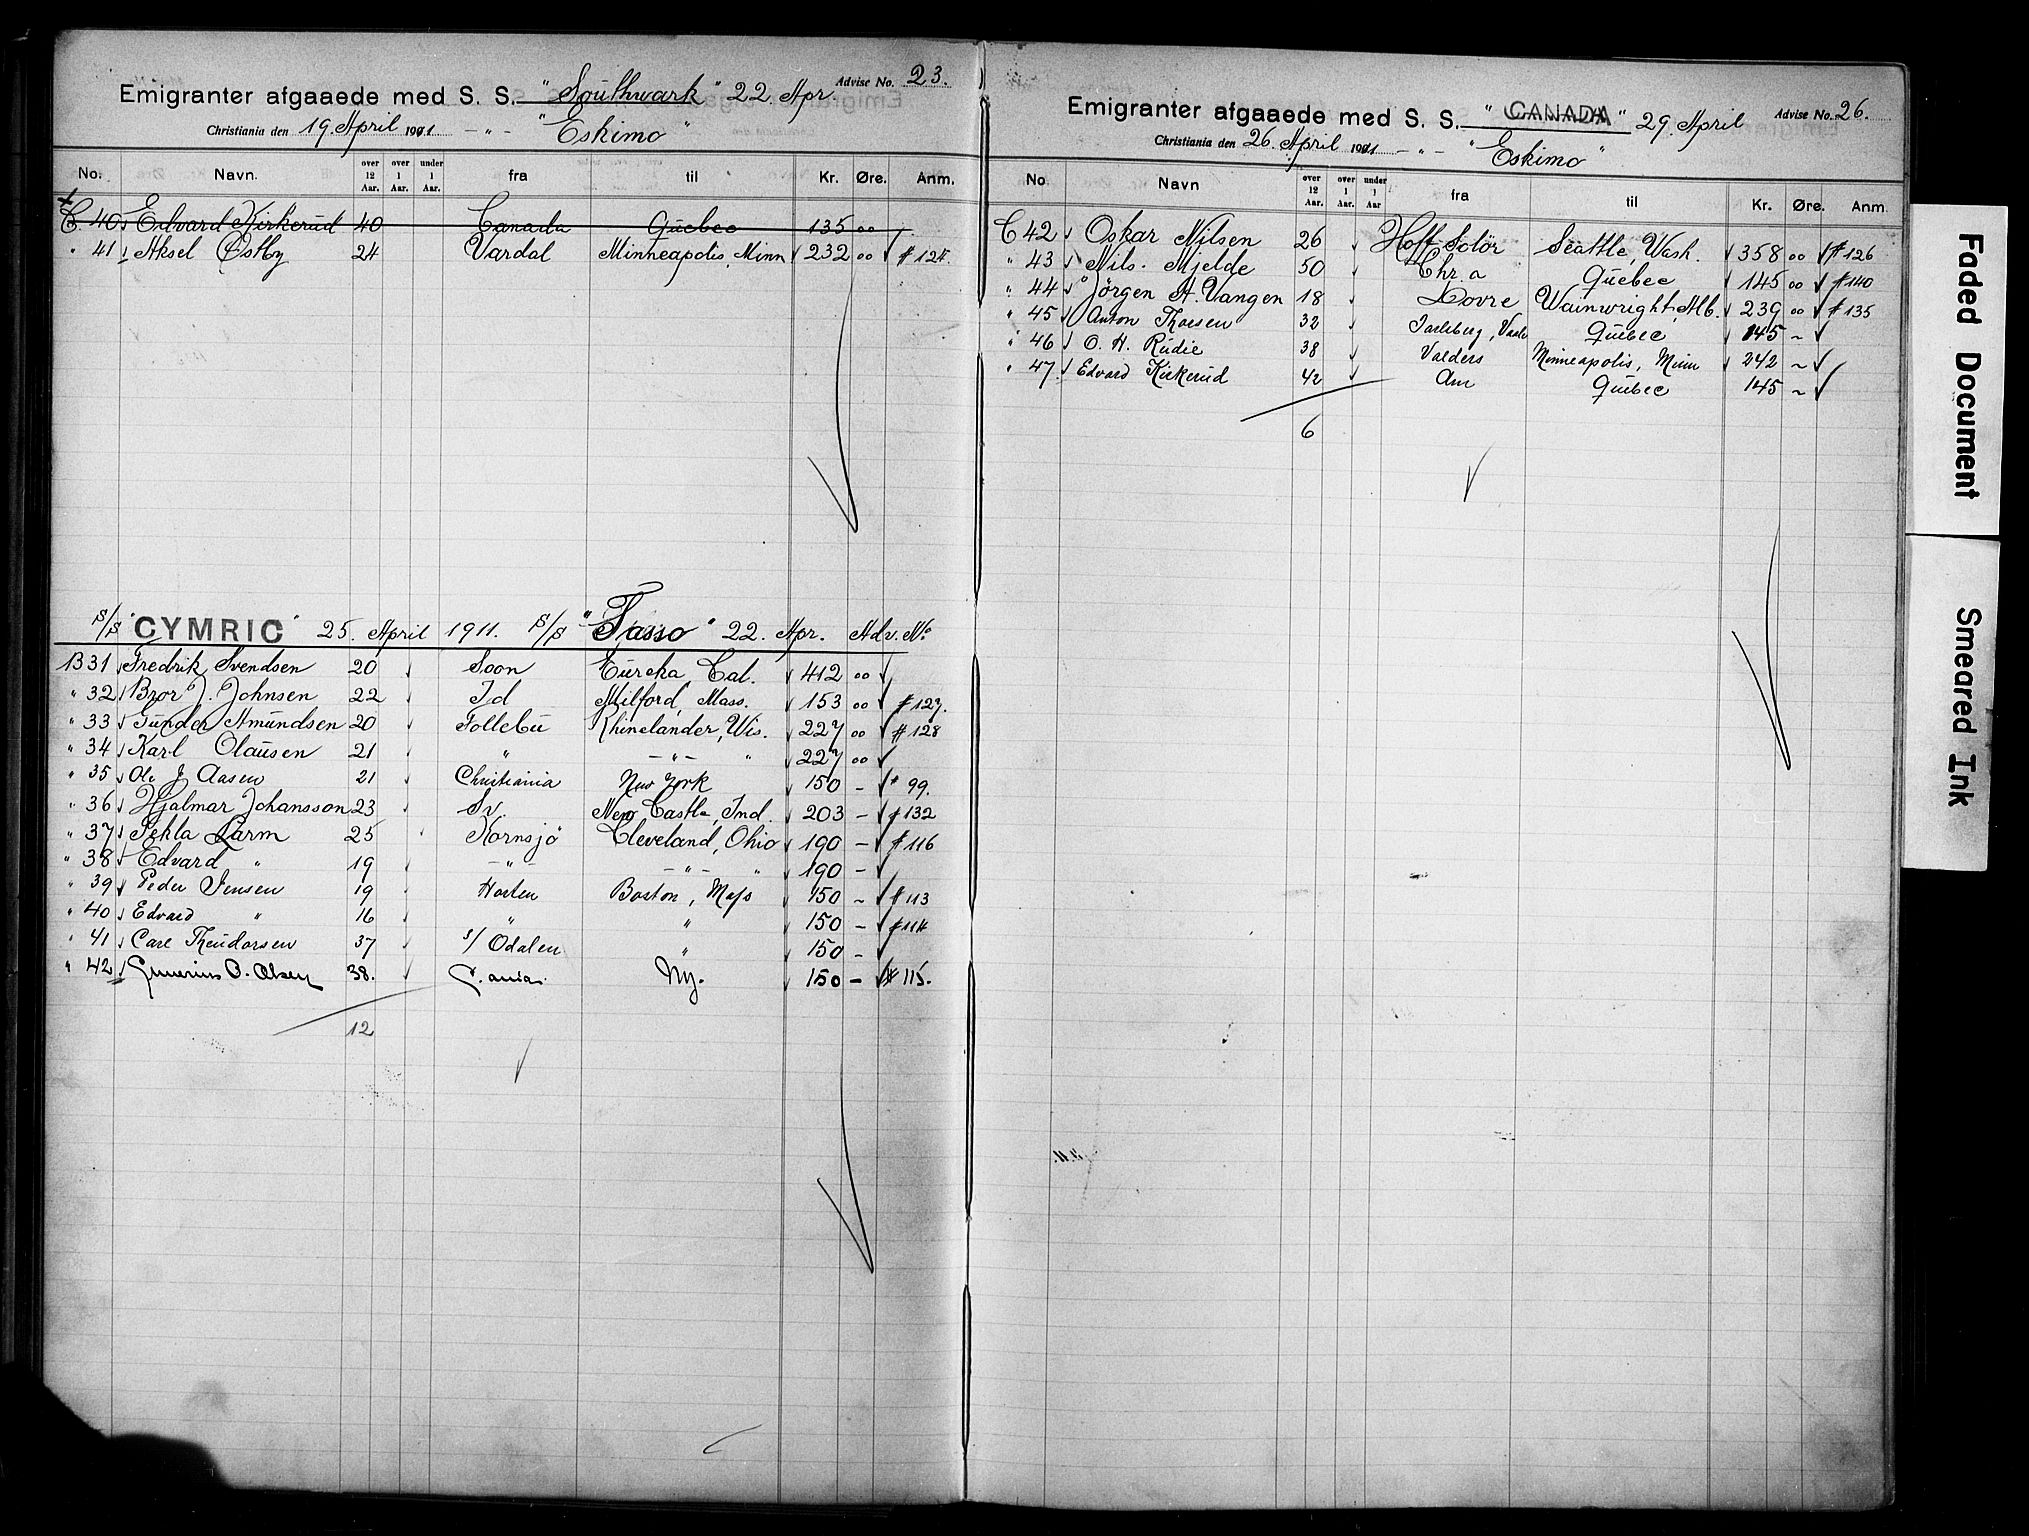 Emigranter afgaaede med S. S. "Southwark" 22. Apr. Advise No. 23.
Christiania den 19. April 1911 -"- "Eskimo"
No. Navn. over 12 Aar. over 1 Aar. under 1 Aar. fra til Kr. Øre. Anm.
C. 40 Edvard Kirkerud 40 Canada Quebec 135 00
" 41 Aksel Østby 24 Vardal Minneapolis, Minn 232 00 # 124.
S/S "CYMRIC" 25. April 1911. S/S "Tasso" 22. Apr. Adv. No
B 31 Fredrik Svendsen 20 Soon Eureka, Cal. 412 00
" 32 Bror J. Johnsen 22 Id Milford, Mass. 153 00 # 127.
" 33 Gunder Amundsen 20 Follebu Rhinelander, Wis. 227 00 # 128
" 34 Karl Olausen 21 " -"- " 227 00
" 35 Ole J Aasen 21 Christiania New York 150 - " 99.
" 36 Hjalmar Johansson 23 Sv. New Castle, Ind. 203 - # 132
" 37 Tekla Larm 25 Kornsjö Cleveland, Ohio 190 - # 116
" 38 Edvard " 19 -"- -"- " 190 -
" 39 Peder Jensen 19 Horten Boston, Mass 150 - # 113
" 40 Edvard " 16 " " 150 - # 114
" 41 Carl Theodorsen 37 s/ Odalen " 150 -
" 42 Gunerius O. Olsen 38. C.ania NY. 150 - # 115.
12
Emigranter afgaaede med S. S. "CANADA" 29. April Advise No. 26.
Christiania den 26. April 1911 -"- "Eskimo"
No Navn over 12 Aar. over 1 Aar. under 1 Aar fra til Kr. Øre. Anm.
C 42 Oskar Nilsen 26 Hoff Solör Seattle, Wash. 358 00 # 126
" 43 Nils. Mjelde 50 Chr.a Quebec 145 00 # 140
" 44 Jörgen A. Vangen 18 Dovre Wainwright, Alb. 239 00 # 135
" 45 Anton Thorsen 32 Jarlsberg, Vaale Quebec 145 ~
" 46 O. H. Rudie 38 Valders Minneapolis, Minn 242 ~
" 47 Edvard Kirkerud 42 Am Quebec 145 ~
6
Faded Document
Smeared Ink